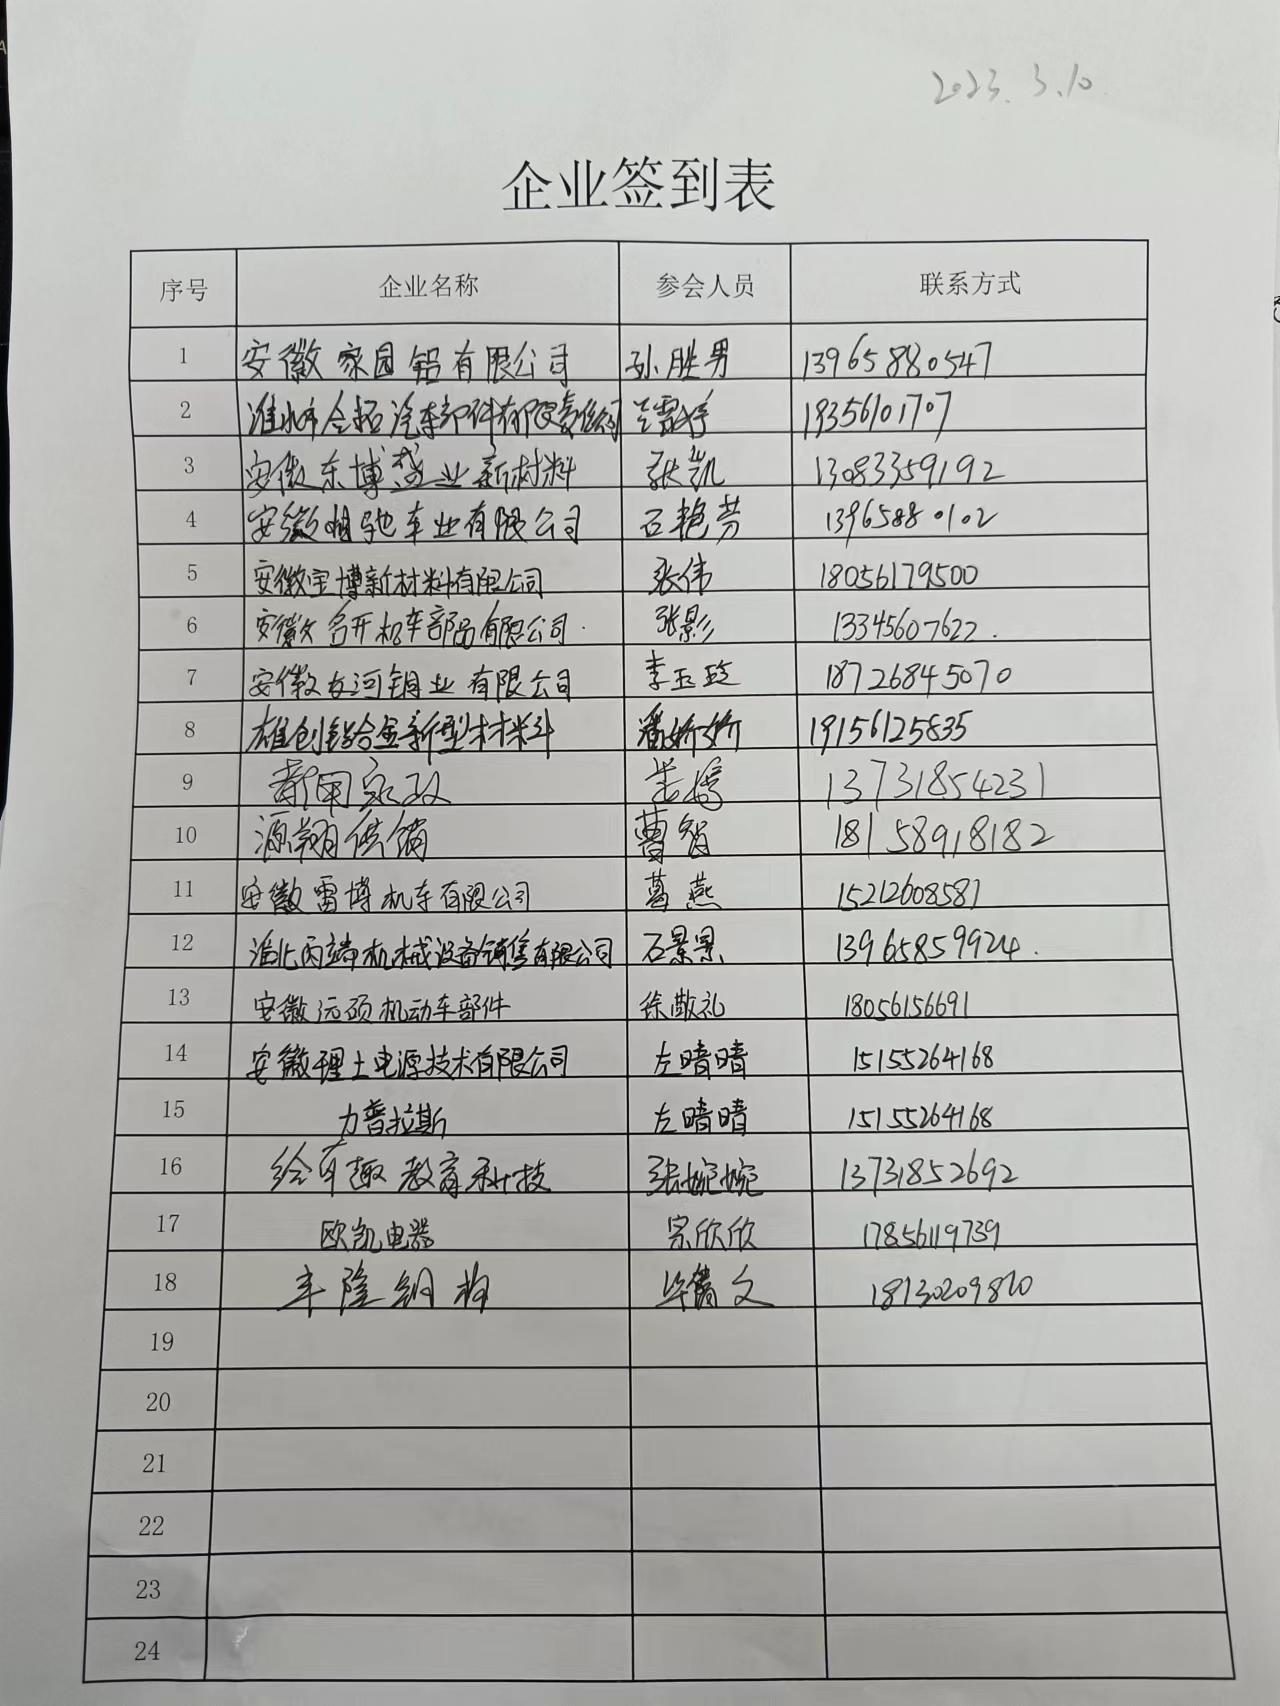 2023.3.10
企业签到表
序号 企业名称 参会人员 联系方式
1 安徽家园铝有限公司 孙胜男 13965880547
2 淮北市全拓汽车部件有限责任公司 19356101707
3 安徽东博盛业新材料 张凯 13083359192
4 安徽明驰车业有限公司 石艳芳 13965880102
5 安徽宝博新材料有限公司 张伟 18056179500
6 安徽名开机车部品有限公司 张影 13345607622
7 安徽友河铜业有限公司 李玉玲 18726845070
8 雄创铝合金新型材料 潘娇娇 19156125835
9 家政 朱婷 13731854231
10 源翔供销 曹智 18158918182
11 安徽雷博机车有限公司 葛燕 15212608581
12 淮北丙端机械设备销售有限公司 石景景 13965859924
13 安徽远硕机动车部件 徐敬礼 18056156691
14 安徽理士电源技术有限公司 左晴晴 15155264168
15 力普拉斯 左晴晴 15155264168
16 绘有趣教育科技 张婉婉 13731852692
17 欧凯电器 宗欣欣 17856119739
18 丰隆钢构 文 18130209820
19
20
21
22
23
24